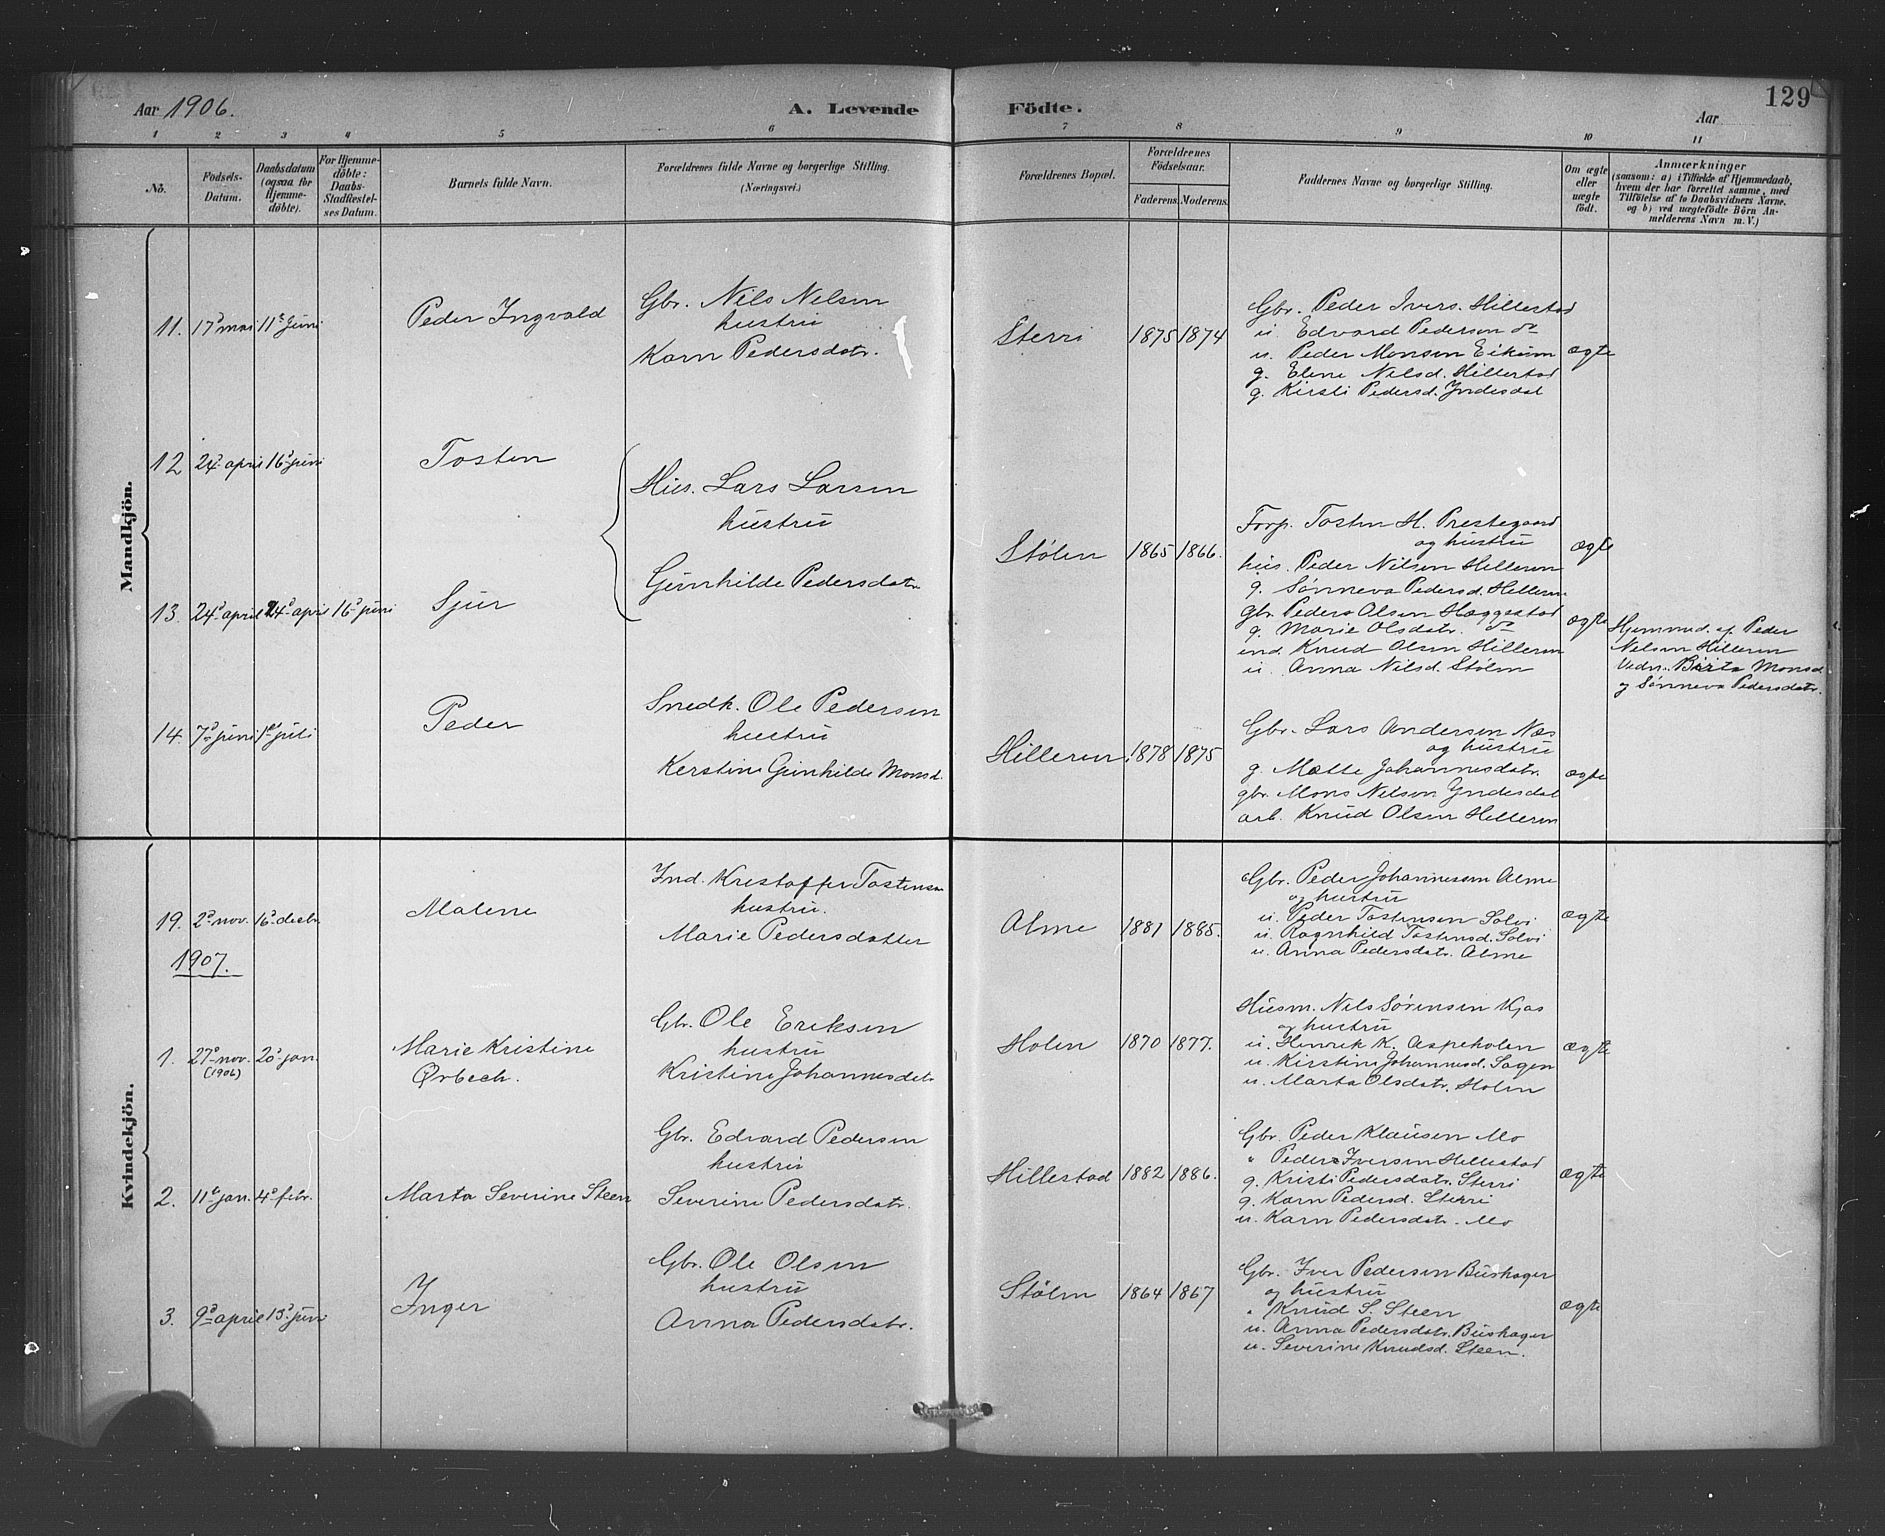 Aar 1906.
A. Levende Födte.
129
Aar
1 2 3 4 5 6 7 8 9 10 11
No.
Födsels-
Datum.
Daabsdatum
(ogsaa for
Hjemme-
döbte).
For Hjemme-
döbte:
Daabs-
Stadfæstel-
ses Datum.
Barnets fulde Navn.
Forældrenes fulde Navne og borgerlige Stilling.
(Næringsvei.)
Forældrenes Bopæl.
Forældrenes
Födselsaar.
Faderens. Moderens.
Faddernes Navne og borgerlige Stilling.
Om ægte
eller
uægte
födt.
Anmærkninger
(saasom: a) i Tilfælde af Hjemmedaab,
hvem der har forrettet samme, med
Tilföielse af to Daabsvidners Navne.
og b) ved uægtefödte Börn An-
melderens Navn m. V.)
Mandkjön.
11. 17d mai 11te juni
Peder Ingvald
Gbr. Nils Nelsen
hustru
Karn Pedersdatr.
Sterri
1875 1874
Gbr. Peder Ivers. Hillestad
u. Edvard Pedersen do
u. Peder Monsen Eikum
g. Eline Nilsd. Hillestad
g. Kirsti Pedersd. Yndesdal
ægte
12 24d april 16d juni
Tosten
Hus. Lars Larsen
hustru
Gunhilde Pedersdatr
Stølen
1865 1866.
Forp. Tosten H. Prestegaard
og hustru
hus. Peder Nilsen Hilleren
g. Sønneva Pedersd. Hilleren
ægte
13. 24d april 24d april 16d juni
Sjur
gbr. Peder Olsen Hæggestad
g. Marie Olsdatr. do
ind. Knud Olsen Hilleren
u. Anna Nilsd. Stølen
ægte
Hjemmed. af Peder
Nelsen Hilleren
Vidn. Birta Monsd.
og Sønneva Pedersdatr.
14. 7d juni 1d juli
Peder
Snedk. Ole Pedersen
hustru
Kerstine Gunhilde Monsd.
Hilleren
1878 1875
Gbr. Lars Andersen Næs
og hustru
g. Mette Johannesdatr.
gbr. Mons Nilsen Yndesdal
arb. Knud Olsen Hilleren
ægte
Kvindekjön.
19. 2d nov. 16d decbr.
Malene
Ind. Kristoffer Tostensen
hustru.
Marie Pedersdatter
Alme
1881 1885.
Gbr. Peder Johannessen Alme
og hustru
u. Peder Tostensen Solvi
u. Ragnhild Tostensd. Solvi
u. Anna Pedersdatr. Alme
ægte
1907.
1. 27d nov. 20d jan.
(1906)
Marie Kristine
Ørbech.
Gbr. Ole Eriksen
hustru
Kristine Johannesdatr
Holen
1870 1877.
Husm. Nils Sørensen Kjos
og hustru
u. Henrik K. Aspeholen
u. Kirstine Johannesd. Sagen
u. Marta Olsdatr. Holen
ægte
2. 11te jan. 4d febr.
Marta Severine Steen
Gbr. Edvard Pedersen
hustru
Severine Pedersdatr.
Hillestad
1882 1886.
Gbr. Peder Klausen Mo
" Peder Iversen Hillestad
g. Kristi Pedersdatr. Sterri
g. Karn Pedersd. Sterri
u. Karn Pedersdatr. Mo
ægte
3. 9d april 15d juni
Inger
Gbr. Ole Olsen
hustru
Anna Pedersdatr.
Stølen
1864 1867
Gbr. Iver Pedersen Buskager
og hustru
" Knud S. Steen
u. Anna Pedersdatr. Buskager
u. Severine Knudsd. Steen.
ægte